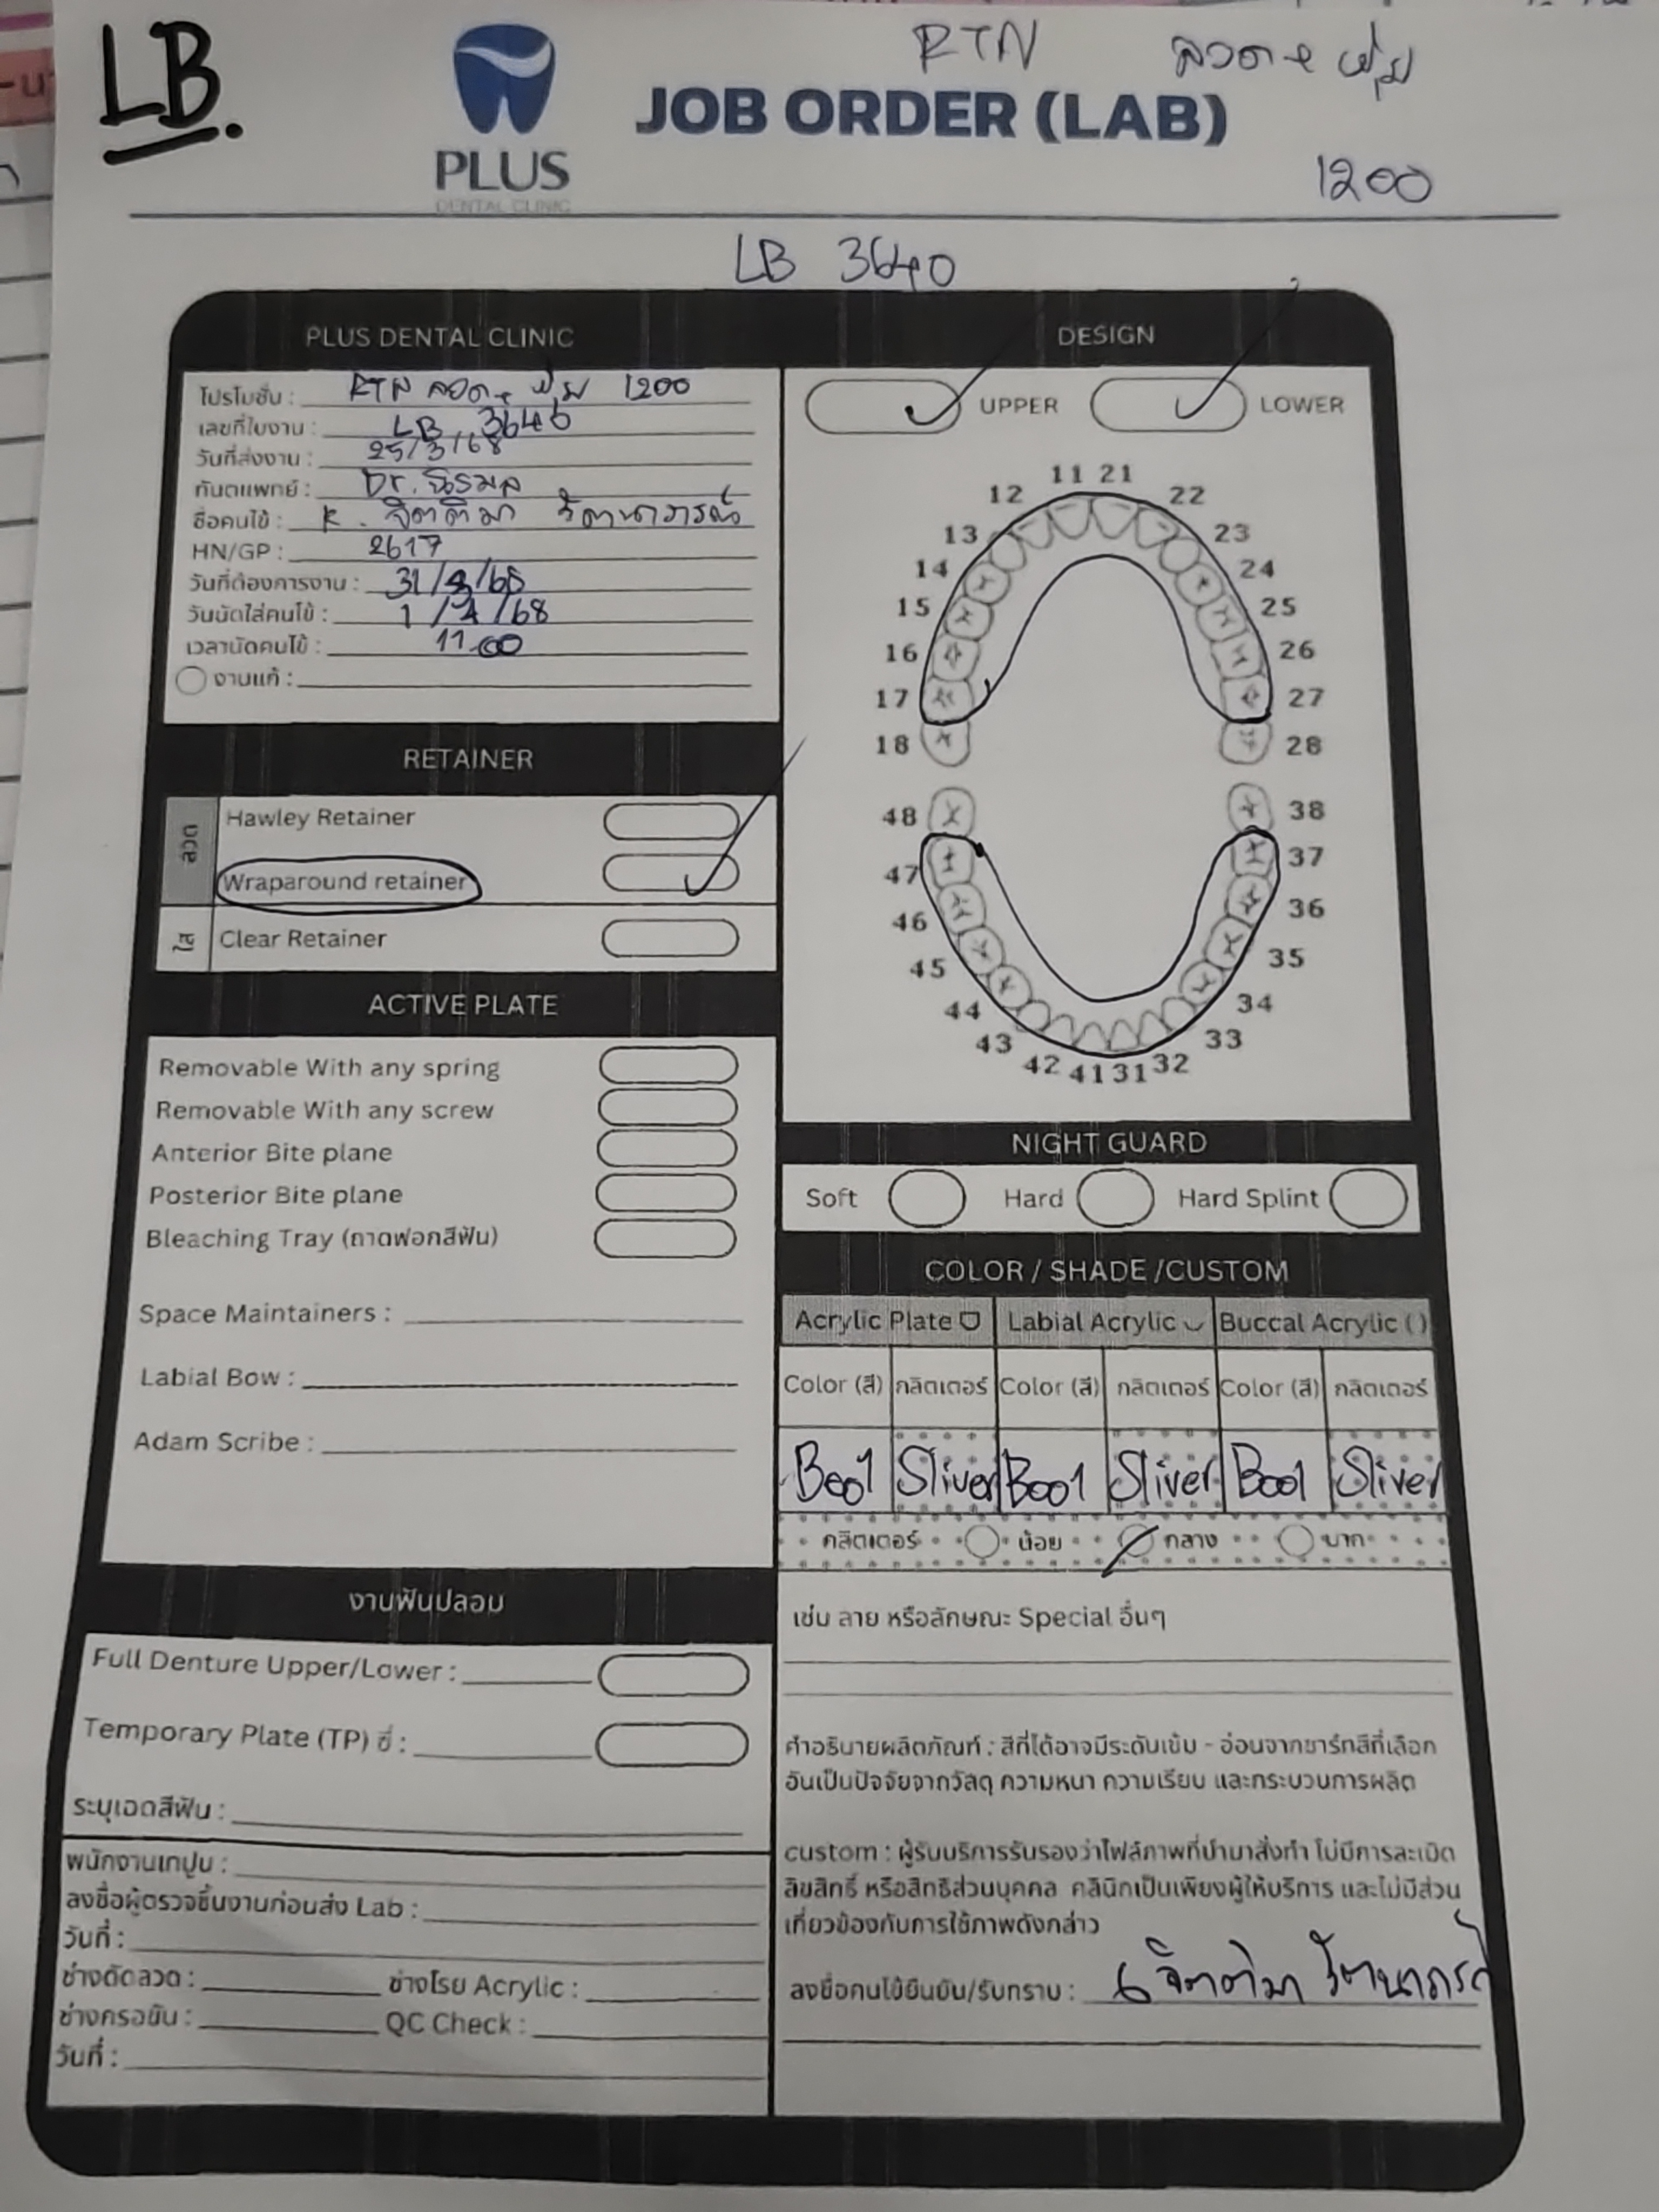 LB.
RTN ลวด+ฟุ้ม
PLUS
DENTAL CLINIC
JOB ORDER (LAB)
1200
LB 3640
PLUS DENTAL CLINIC
โปรโมชั่น : RTN ลวด+ฟุ้ม 1200
เลขที่ใบงาน : LB 3640
วันที่ส่งงาน : 25/3/68
ทันตแพทย์ : Dr. นิรมล
ชื่อคนไข้ : K. จิตติมา รัตนาภรณ์
HN/GP : 2617
วันที่ต้องการงาน : 31/3/68
วันนัดใส่คนไข้ : 1/4/68
เวลานัดคนไข้ : 11.00
งานแก้ :
RETAINER
ลวด
Hawley Retainer
Wraparound retainer
ใส
Clear Retainer
ACTIVE PLATE
Removable With any spring
Removable With any screw
Anterior Bite plane
Posterior Bite plane
Bleaching Tray (ถาดฟอกสีฟัน)
Space Maintainers :
Labial Bow :
Adam Scribe :
งานฟันปลอม
Full Denture Upper/Lower :
Temporary Plate (TP) ซี่ :
ระบุเฉดสีฟัน :
พนักงานเทปูน :
ลงชื่อผู้ตรวจชิ้นงานก่อนส่ง Lab :
วันที่ :
ช่างดัดลวด : ช่างโรย Acrylic :
ช่างกรอขัน : QC Check :
วันที่ :
DESIGN
UPPER LOWER
11 21
12 22
13 23
14 24
15 25
16 26
17 27
18 28
48 38
47 37
46 36
45 35
44 34
43 33
42 41 31 32
NIGHT GUARD
Soft Hard Hard Splint
COLOR / SHADE /CUSTOM
Acrylic Plate Labial Acrylic Buccal Acrylic ( )
Color (สี) กลิตเตอร์ Color (สี) กลิตเตอร์ Color (สี) กลิตเตอร์
B001 Sliver B001 Sliver B001 Sliver
กลิตเตอร์ น้อย กลาง มาก
เช่น ลาย หรือลักษณะ Special อื่นๆ
คำอธิบายผลิตภัณฑ์ : สีที่ได้อาจมีระดับเข้ม - อ่อนจากชาร์ทสีที่เลือก
อันเป็นปัจจัยจากวัสดุ ความหนา ความเรียบ และกระบวนการผลิต
custom : ผู้รับบริการรับรองว่าไฟล์ภาพที่นำมาสั่งทำ ไม่มีการละเมิด
ลิขสิทธิ์ หรือสิทธิส่วนบุคคล คลินิกเป็นเพียงผู้ให้บริการ และไม่มีส่วน
เกี่ยวข้องกับการใช้ภาพดังกล่าว
ลงชื่อคนไข้ยืนยัน/รับทราบ : จิตติมา รัตนาภรณ์